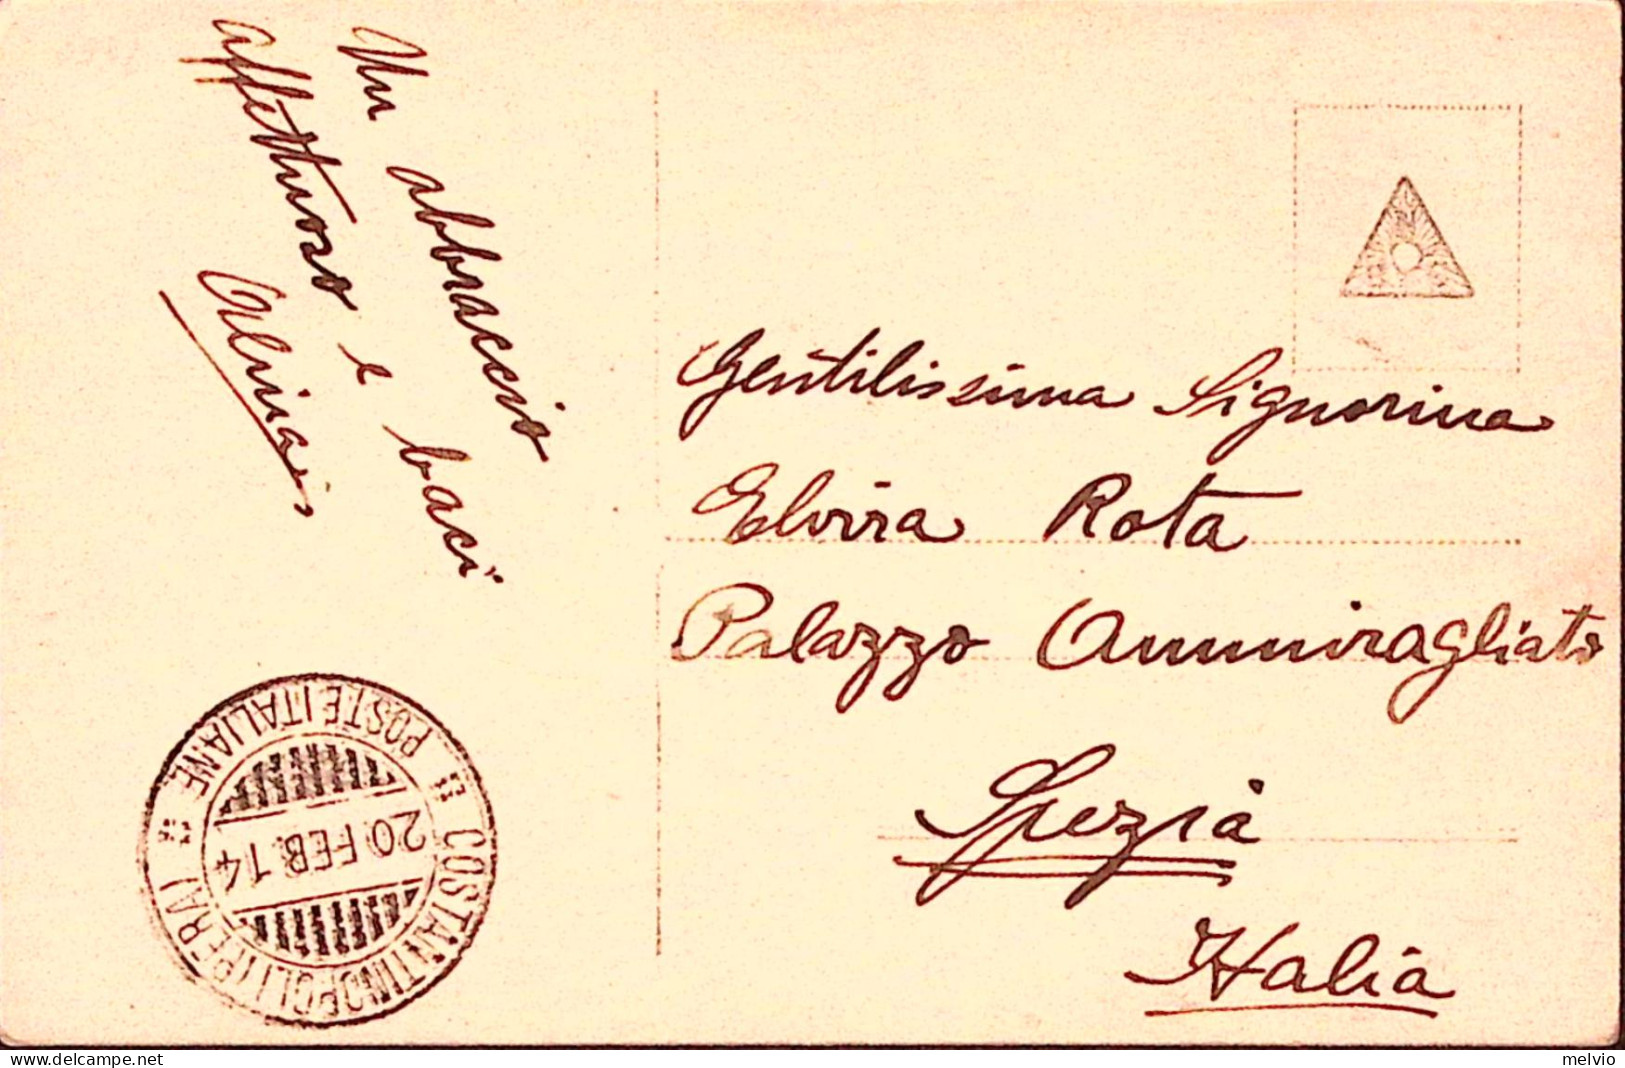 Un abbraccio
affettuoso e baci
Gentilissima Signorina
Elvira Rota
Palazzo Ammiragliato
Spezia
Italia
COSTANTINOPOLI (PERA)
POSTE ITALIANE
20 FEB. 14
melvio